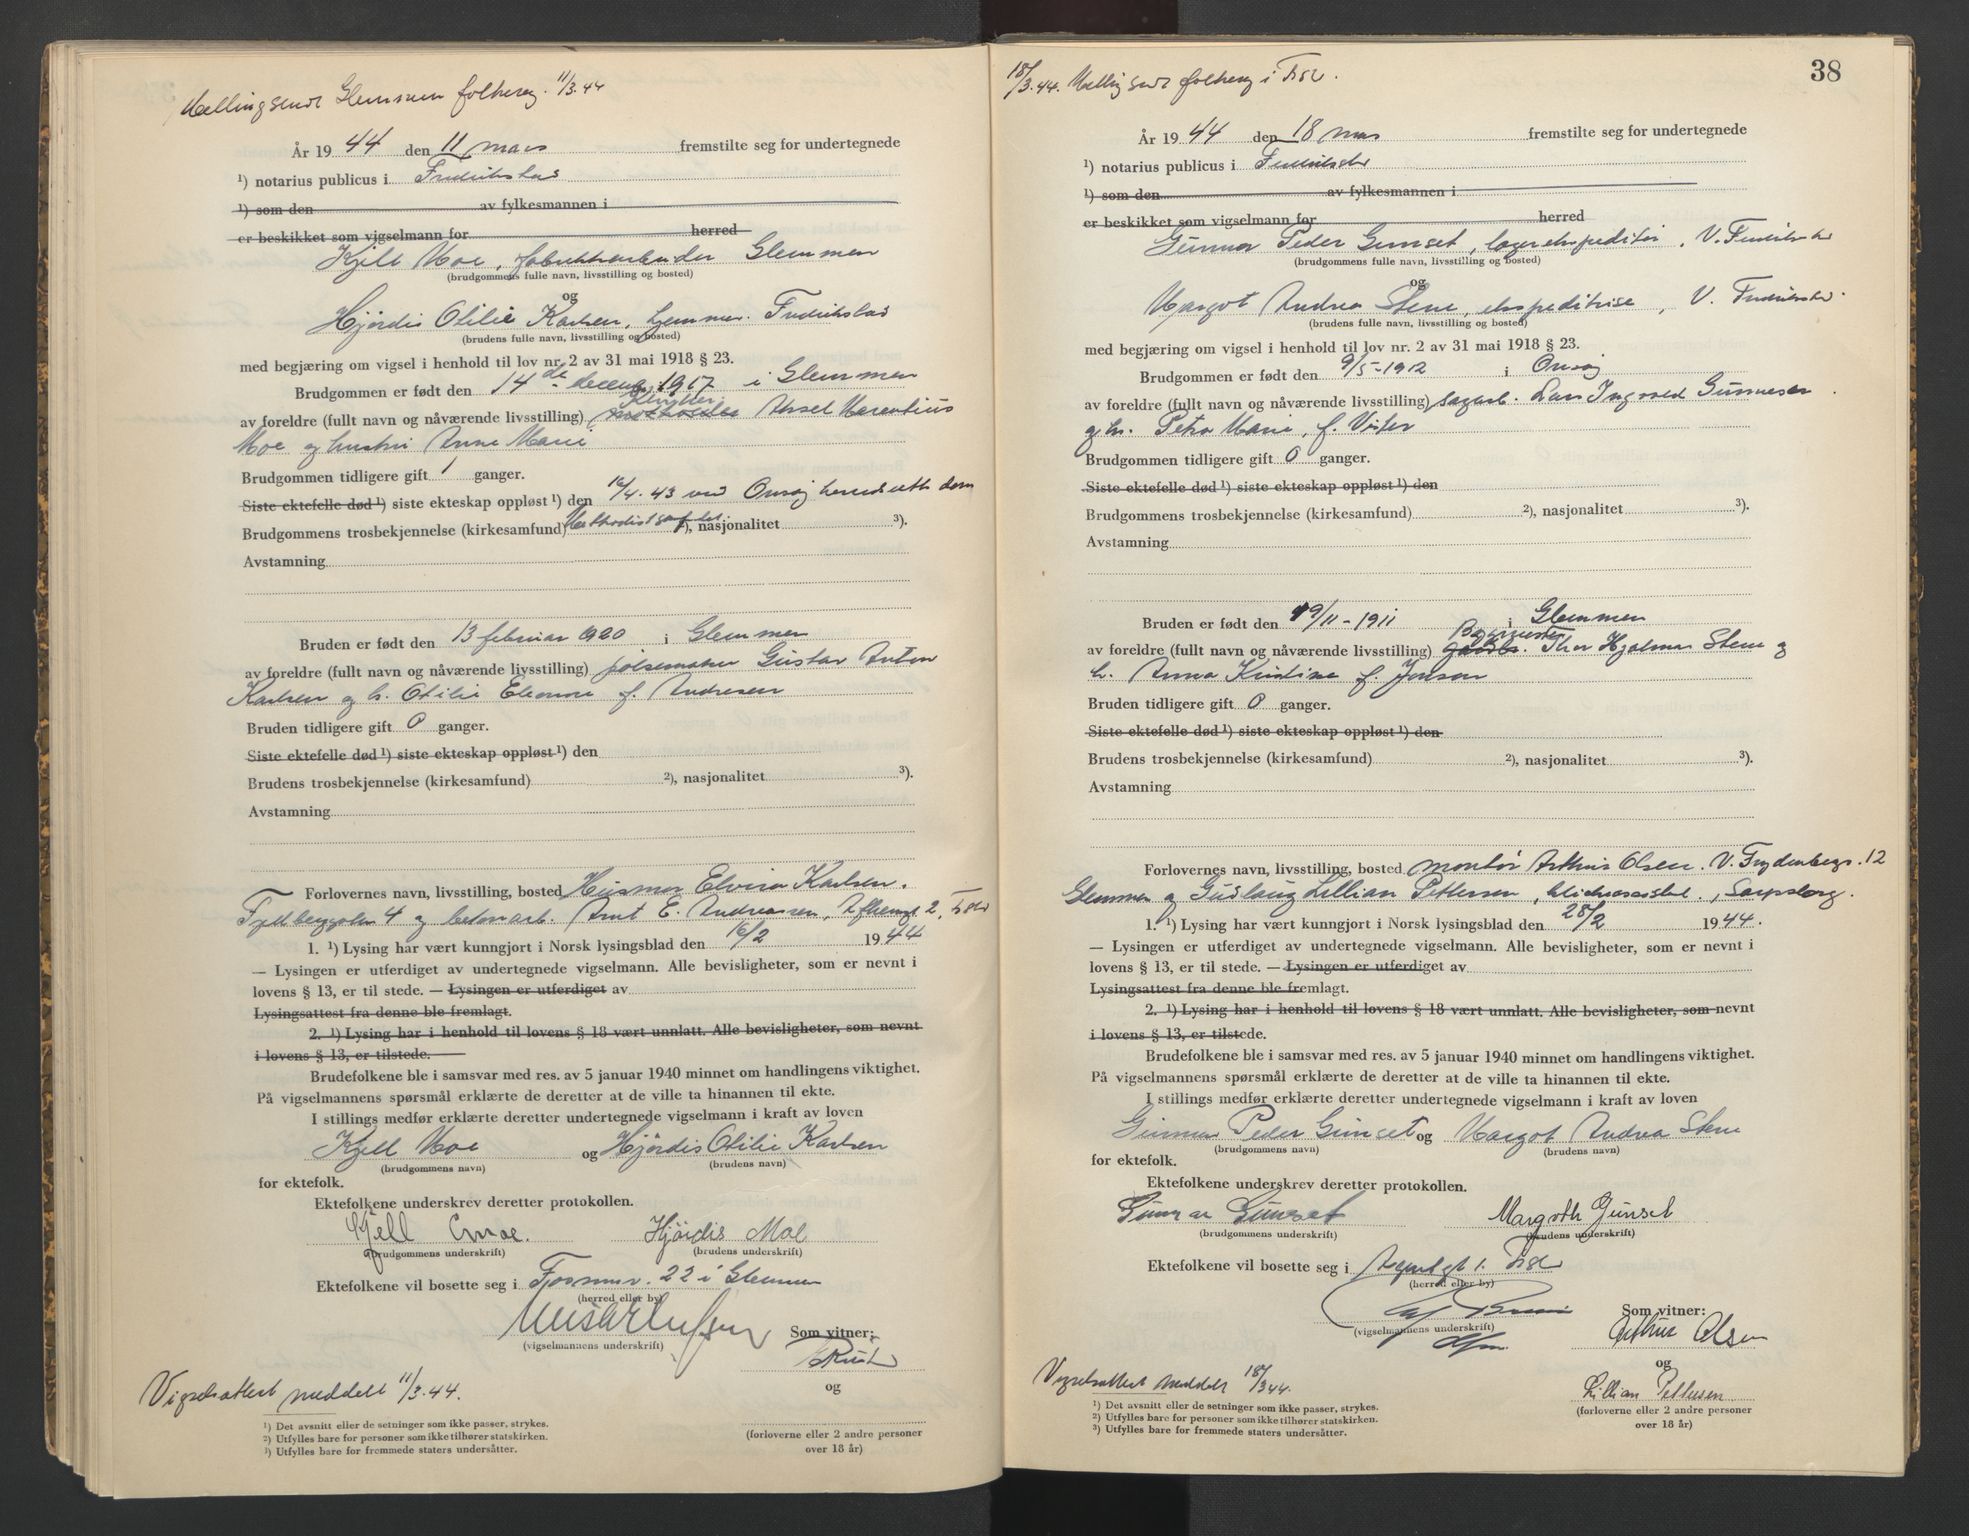 Mellingsendt Glemmen folkereg. 11/3.44
År 1944 den 11 mars fremstilte seg for undertegnede
¹) notarius publicus i Fredrikstad
¹) som den av fylkesmannen i
er beskikket som vigselmann for herred
Kjell Moe, fabrikkarbeider Glemmen
(brudgommens fulle navn, livsstilling og bosted)
og
Hjördis Otilie Karlsen, hjemmev. Fredrikstad
(brudens fulle navn, livsstilling og bosted)
med begjæring om vigsel i henhold til lov nr. 2 av 31 mai 1918 § 23.
Brudgommen er født den 14de decemb 1917 i Glemmen
av foreldre (fullt navn og nåværende livsstilling) Aksel Marentius
Moe og hustru Anne Marie
Brudgommen tidligere gift 1 ganger.
Siste ektefelle død ¹) siste ekteskap oppløst ¹) den 16/4.43 ved Onsøy herredsretts dom
Brudgommens trosbekjennelse (kirkesamfund) Methodistsamfdet ²), nasjonalitet ³).
Avstamning
Bruden er født den 13 februar 1920 i Glemmen
av foreldre (fullt navn og nåværende livsstilling) pølsemaker Gustav Anton
Karlsen og h. Otilie Eleonore f. Andresen
Bruden tidligere gift 0 ganger.
Siste ektefelle død ¹) siste ekteskap oppløst ¹) den
Brudens trosbekjennelse (kirkesamfund) ²), nasjonalitet ³).
Avstamning
Forlovernes navn, livsstilling, bosted Husmor Elvira Karlsen.
4 og betonarb. Arnt E. Andreassen, 2, F.stad
1. ¹) Lysing har vært kunngjort i Norsk lysingsblad den 16/2 1944
— Lysingen er utferdiget av undertegnede vigselmann. Alle bevisligheter, som er nevnt i
lovens § 13, er til stede. — Lysingen er utferdiget av
Lysingsattest fra denne ble fremlagt.
2. ¹) Lysing har i henhold til lovens § 18 vært unnlatt. Alle bevisligheter, som nevnt
i lovens § 13, er tilstede.
Brudefolkene ble i samsvar med res. av 5 januar 1940 minnet om handlingens viktighet.
På vigselmannens spørsmål erklærte de deretter at de ville ta hinannen til ekte.
I stillings medfør erklærte deretter undertegnede vigselmann i kraft av loven
Kjell Moe og Hjördis Otilie Karlsen
(brudgommens navn) (brudens navn)
for ektefolk.
Ektefolkene underskrev deretter protokollen.
Kjell Moe. Hjördis Moe
(brudgommens underskrift) (brudens underskrift)
Ektefolkene vil bosette seg i 22 i Glemmen
(herred eller by)
Som vitner:
(vigselmannens underskrift)
og
Vigselsattest meddelt 11/3.44.
¹) Det avsnitt eller de setninger som ikke passer, strykes.
²) Utfylles bare for personer som ikke tilhører statskirken.
³) Utfylles bare for fremmede staters undersåtter.
(forloverne eller 2 andre personer
over 18 år)
38
18/3.44. Melling sendt folkereg i F.stad.
År 1944 den 18 mars fremstilte seg for undertegnede
¹) notarius publicus i Fredrikstad
¹) som den av fylkesmannen i
er beskikket som vigselmann for herred
Gunnar Peder Gunset, lagerekspeditør, V. Fredrikstad
(brudgommens fulle navn, livsstilling og bosted)
og
Margot Andrea Stene, ekspeditrise, V. Fredrikstad.
(brudens fulle navn, livsstilling og bosted)
med begjæring om vigsel i henhold til lov nr. 2 av 31 mai 1918 § 23.
Brudgommen er født den 9/5-1912 i Onsøy
av foreldre (fullt navn og nåværende livsstilling) sagarb. Lars Ingvald Gunnesen
og h. Petra Marie, f.
Brudgommen tidligere gift 0 ganger.
Siste ektefelle død ¹) siste ekteskap oppløst ¹) den
Brudgommens trosbekjennelse (kirkesamfund) ²), nasjonalitet ³).
Avstamning
Bruden er født den 19/11-1911 i Glemmen
av foreldre (fullt navn og nåværende livsstilling) Thor Hjalmar Stene og
h. Anna Kristine f. Jonson
Bruden tidligere gift 0 ganger.
Siste ektefelle død ¹) siste ekteskap oppløst ¹) den
Brudens trosbekjennelse (kirkesamfund) ²), nasjonalitet ³).
Avstamning
Forlovernes navn, livsstilling, bosted montør Arthur Olsen. V. Frydenbergs. 12
Glemmen og Gudlaug Lillian Pettersen, , Sarpsborg.
1. ¹) Lysing har vært kunngjort i Norsk lysingsblad den 28/2 1944.
— Lysingen er utferdiget av undertegnede vigselmann. Alle bevisligheter, som er nevnt i
lovens § 13, er til stede. — Lysingen er utferdiget av
Lysingsattest fra denne ble fremlagt.
2. ¹) Lysing har i henhold til lovens § 18 vært unnlatt. Alle bevisligheter, som nevnt
i lovens § 13, er tilstede.
Brudefolkene ble i samsvar med res. av 5 januar 1940 minnet om handlingens viktighet.
På vigselmannens spørsmål erklærte de deretter at de ville ta hinannen til ekte.
I stillings medfør erklærte deretter undertegnede vigselmann i kraft av loven
Gunnar Peder Gunset og Margot Andrea Stene
(brudgommens navn) (brudens navn)
for ektefolk.
Ektefolkene underskrev deretter protokollen.
Gunnar Gunset Margoth Gunset
(brudgommens underskrift) (brudens underskrift)
Ektefolkene vil bosette seg i 1. F.stad
(herred eller by)
Som vitner:
(vigselmannens underskrift)
Arthur Olsen
og
Lillian Pettersen
Vigselsattest meddelt 18/3 44.
¹) Det avsnitt eller de setninger som ikke passer, strykes.
²) Utfylles bare for personer som ikke tilhører statskirken.
³) Utfylles bare for fremmede staters undersåtter.
(forloverne eller 2 andre personer
over 18 år)